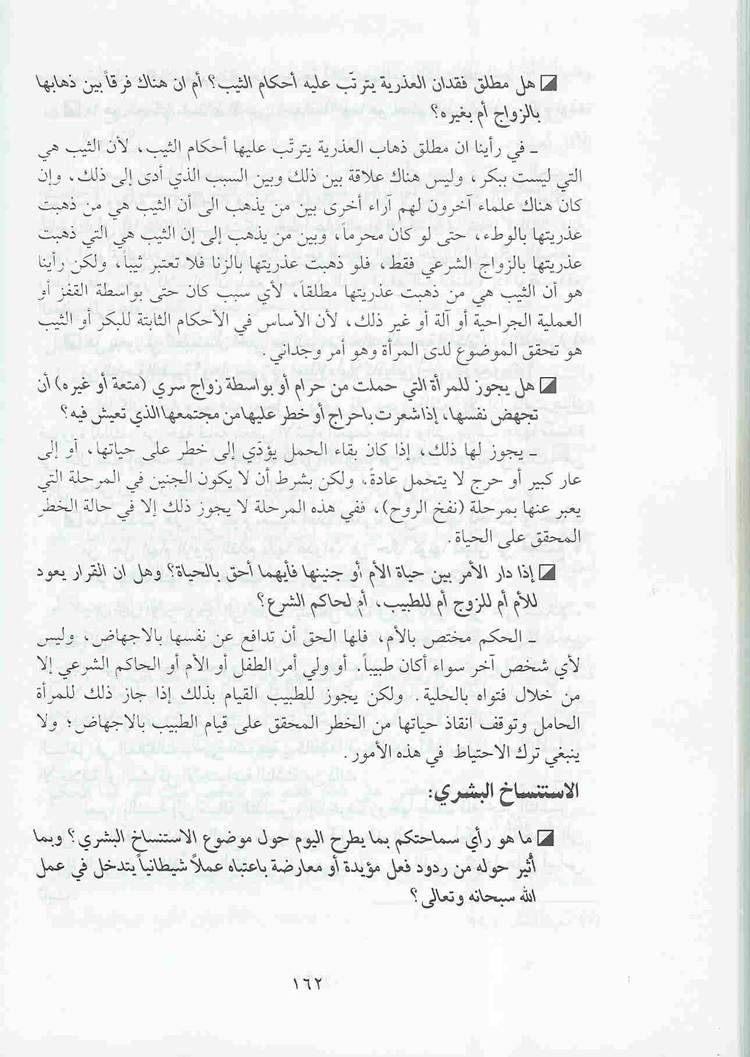 هل مطلق فقدان العذرية يترتّب عليه أحكام الثيب؟ أم ان هناك فرقاً بين ذهابها
بالزواج أم بغيره؟
ـ في رأينا ان مطلق ذهاب العذرية يترتّب عليها أحكام الثيب، لأن الثيب هي
التي ليست ببكر، وليس هناك علاقة بين ذلك وبين السبب الذي أدى إلى ذلك، وإن
كان هناك علماء آخرون لهم آراء أخرى بين من يذهب الى أن الثيب هي من ذهبت
عذريتها بالوطء، حتى لو كان محرماً، وبين من يذهب إلى إن الثيب هي التي ذهبت
عذريتها بالزواج الشرعي فقط، فلو ذهبت عذريتها بالزنا فلا تعتبر ثيباً، ولكن رأينا
هو أن الثيب هي من ذهبت عذريتها مطلقاً، لأي سبب كان حتى بواسطة القفز أو
العملية الجراحية أو آلة أو غير ذلك، لأن الأساس في الأحكام الثابتة للبكر أو الثيب
هو تحقق الموضوع لدى المرأة وهو أمر وجداني.
هل يجوز للمرأة التي حملت من حرام أو بواسطة زواج سري (متعة أو غيره) أن
تجهض نفسها، إذا شعرت باحراج أو خطر عليها من مجتمعها الذي تعيش فيه؟
ـ يجوز لها ذلك، إذا كان بقاء الحمل يؤدّي إلى خطر على حياتها، أو إلى
عار كبير أو حرج لا يتحمل عادةً، ولكن بشرط أن لا يكون الجنين في المرحلة التي
يعبر عنها بمرحلة (نفخ الروح)، ففي هذه المرحلة لا يجوز ذلك إلا في حالة الخطر
المحقق على الحياة.
إذا دار الأمر بين حياة الأم أو جنينها فأيهما أحق بالحياة؟ وهل ان القرار يعود
للأم أم للزوج أم للطبيب، أم لحاكم الشرع؟
ـ الحكم مختص بالأم، فلها الحق أن تدافع عن نفسها بالاجهاض، وليس
لأي شخص آخر سواء أكان طبيباً. أو ولي أمر الطفل أو الأم أو الحاكم الشرعي إلا
من خلال فتواه بالحلية. ولكن يجوز للطبيب القيام بذلك إذا جاز ذلك للمرأة
الحامل وتوقف انقاذ حياتها من الخطر المحقق على قيام الطبيب بالاجهاض؛ ولا
ينبغي ترك الاحتياط في هذه الأمور.
الاستنساخ البشري:
ما هو رأي سماحتكم بما يطرح اليوم حول موضوع الاستنساخ البشري؟ وبما
أثير حوله من ردود فعل مؤيدة أو معارضة باعتباه عملاً شيطانياً يتدخل في عمل
الله سبحانه وتعالى؟
١٦٢